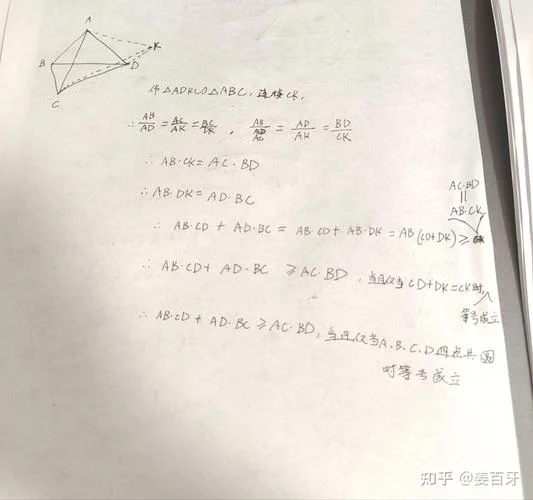 A
K
B
D
C
作△ADK∽△ABC,连接CK,
∴ AB/AD = AC/AK = BC/DK , AB/AC = AD/AK = BD/CK
∴ AB·CK = AC·BD
∴ AB·DK = AD·BC
AC·BD
||
AB·CK
∴ AB·CD + AD·BC = AB·CD + AB·DK = AB(CD+DK) ≥
∴ AB·CD + AD·BC ≥ AC·BD ,当且仅当CD+DK=CK时,
等号成立
∴ AB·CD + AD·BC ≥ AC·BD,当且仅当A、B、C、D四点共圆
时等号成立
知乎 @姜百牙